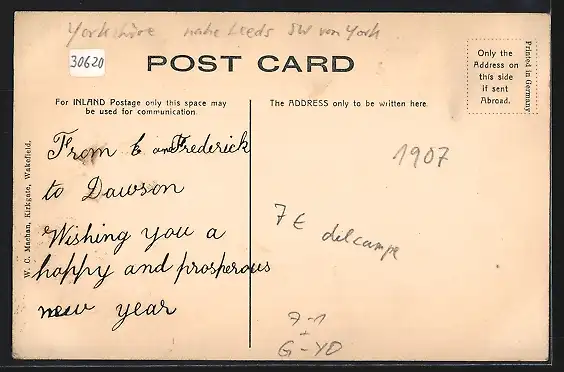 Yorkshire nahe Leeds SW von York
30620
POST CARD
Only the
Address on
this side
if sent
Abroad.
Printed in Germany
For INLAND Postage only this space may
be used for communication.
The ADDRESS only to be written here.
W. C. Machan, Kirkgate, Wakefield.
From E and Frederick
to Dawson
Wishing you a
happy and prosperous
new year
1907
7 € delcampe
7-1
G-YO